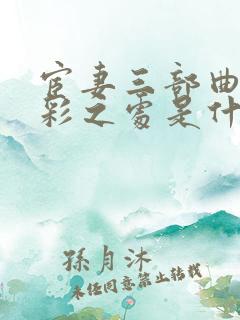 宦妻三部曲
彩之處是什
孫月沐
未经同意禁止转载